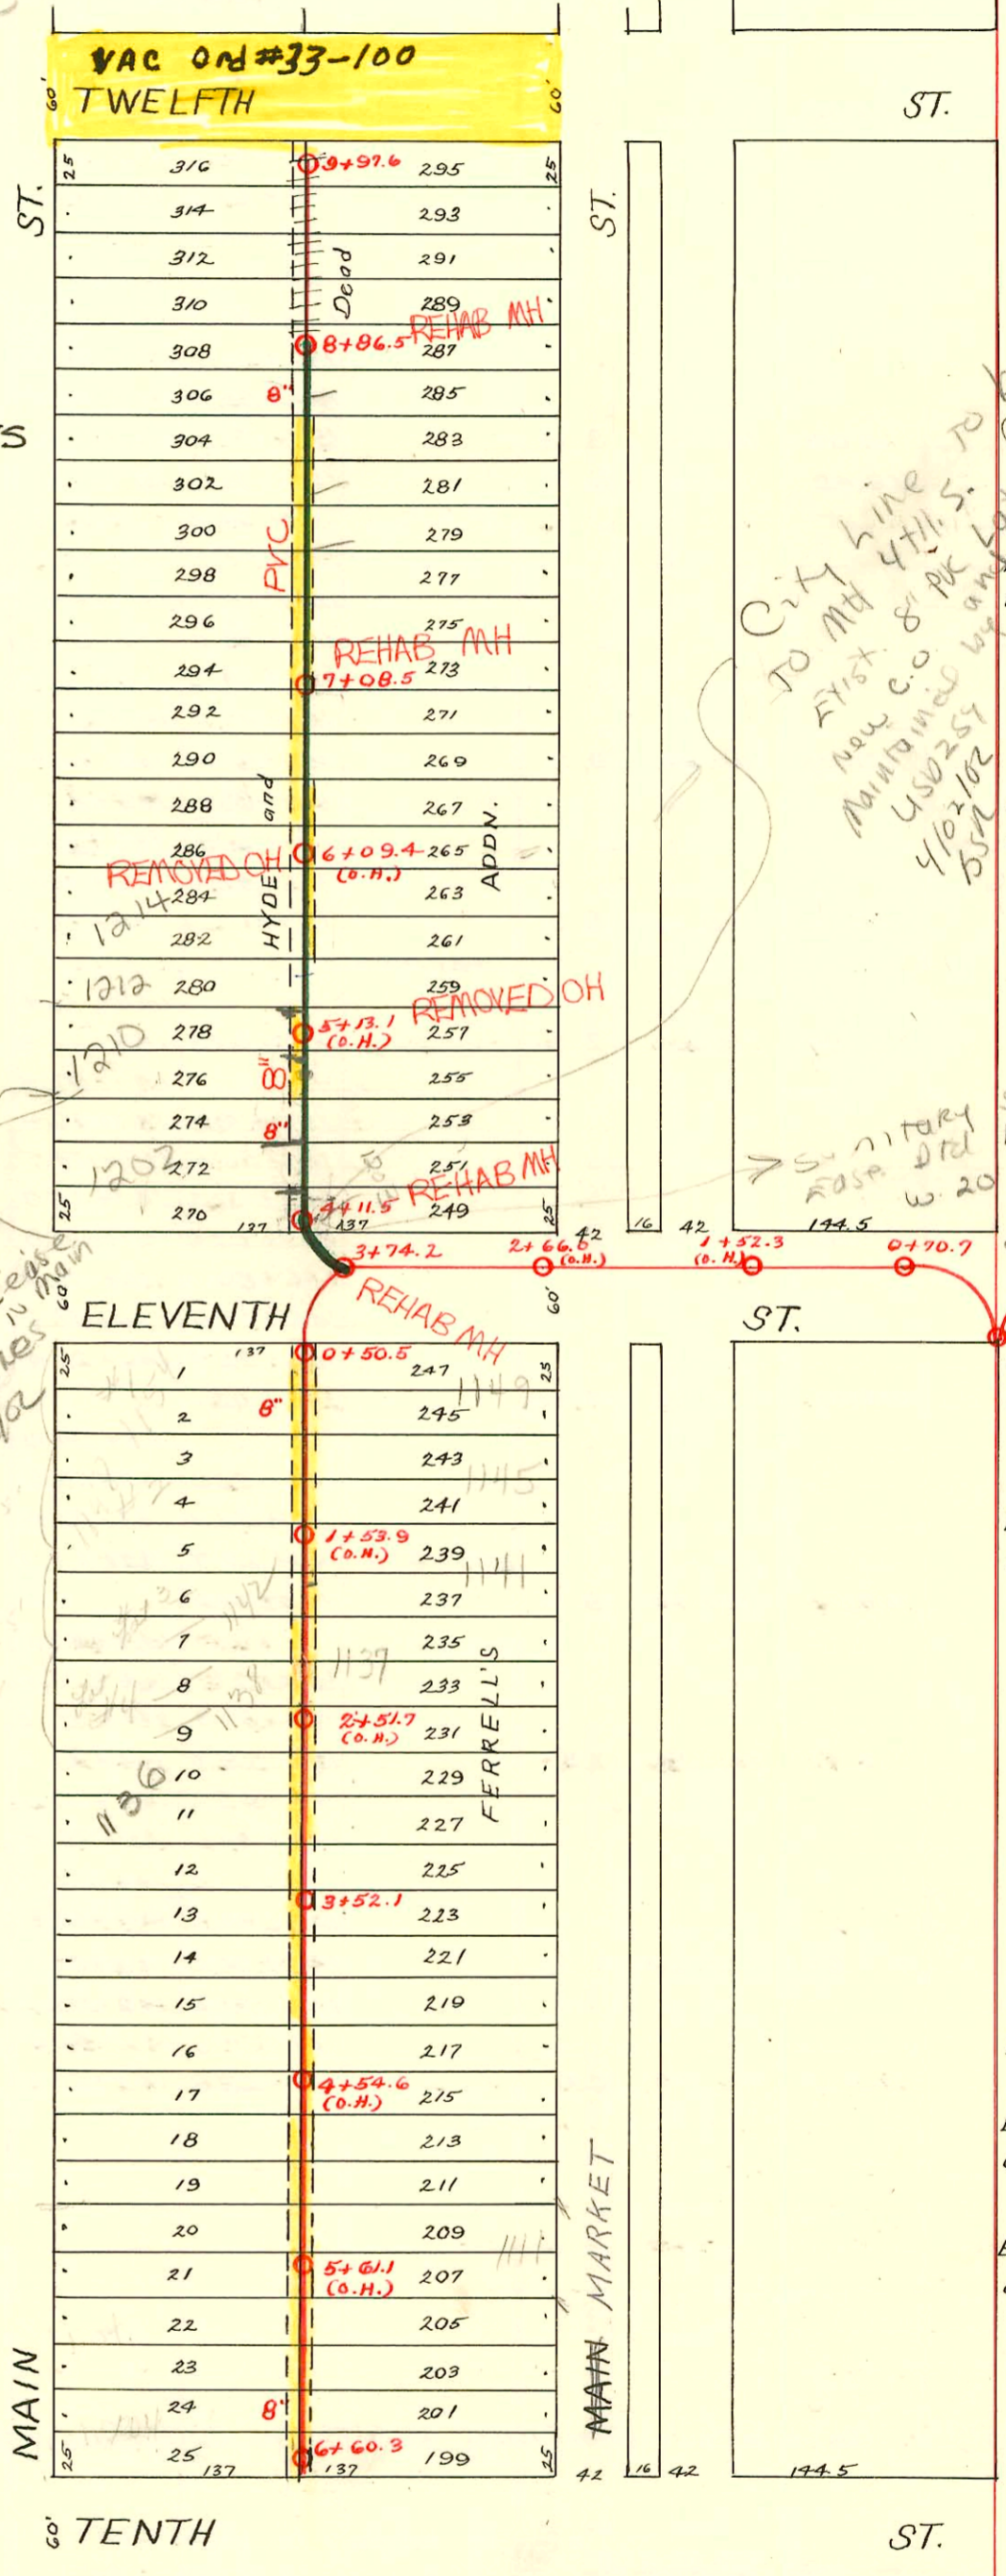 VAC Ord #33-100
60' TWELFTH 60' ST.
25 316 9+97.6 295 25
ST. 314 293 ST.
312 Dead 291
310 289
REHAB MH
308 8+86.5 287
306 8" 285
S
304 283
302 281
300 279
PVC
298 277
296 275
REHAB MH
294 7+08.5 273
292 271
290 269
288 267
HYDE and ADDN.
286 6+09.4 265
REMOVED OH (O.H.)
284 263
1214
282 261
1212 280 259
REMOVED OH
278 5+13.1 257
1210 (O.H.)
276 8" 255
274 8" 253
1202 272 251
REHAB MH
25 270 137 4+11.5 137 249 25
City Line TO
TO MH 4+11.5.
Exist. 8" PVC
New C.O. and
Maintained by
USD 259
4/02/02
DSN
Sanitary
Ease Dtd
W. 20
42 16 42 144.5
3+74.2 2+66.6 (O.H.) 1+52.3 (O.H.) 0+70.7
ease
in main
60' ELEVENTH 60' ST.
REHAB MH
25 1 137 0+50.5 247 25
1149
2 8" 245
3 243
1145
4 241
5 1+53.9 239
(O.H.) 1141
6 237
1142
7 235
1137
8 233
1138
9 2+51.7 231
(O.H.)
FERRELL'S
10 229
1136
11 227
12 225
13 3+52.1 223
14 221
15 219
16 217
17 4+54.6 215
(O.H.)
18 213
19 211
20 209
1111
21 5+61.1 207
(O.H.)
22 205
23 203
24 8" 201
25 25 137 6+60.3 137 199 25
MAIN
MAIN MARKET
42 16 42 144.5
60' TENTH ST.